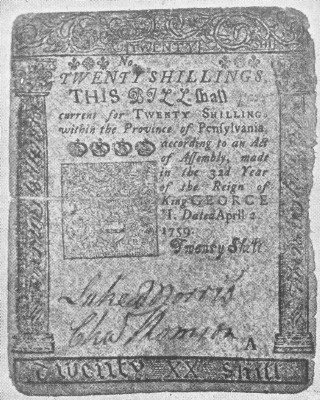 TWENTY
No.
TWENTY SHILLINGS.
THIS BILL shall
current for TWENTY SHILLING.
within the Province of Pensylvania,
according to an Act
of Assembly, made
in the 32d Year
of the Reign of
King GEORGE
II. Dated April 2
1759.
Twenty Shill
Luke Morris
Cha
A
Twenty XX Shill